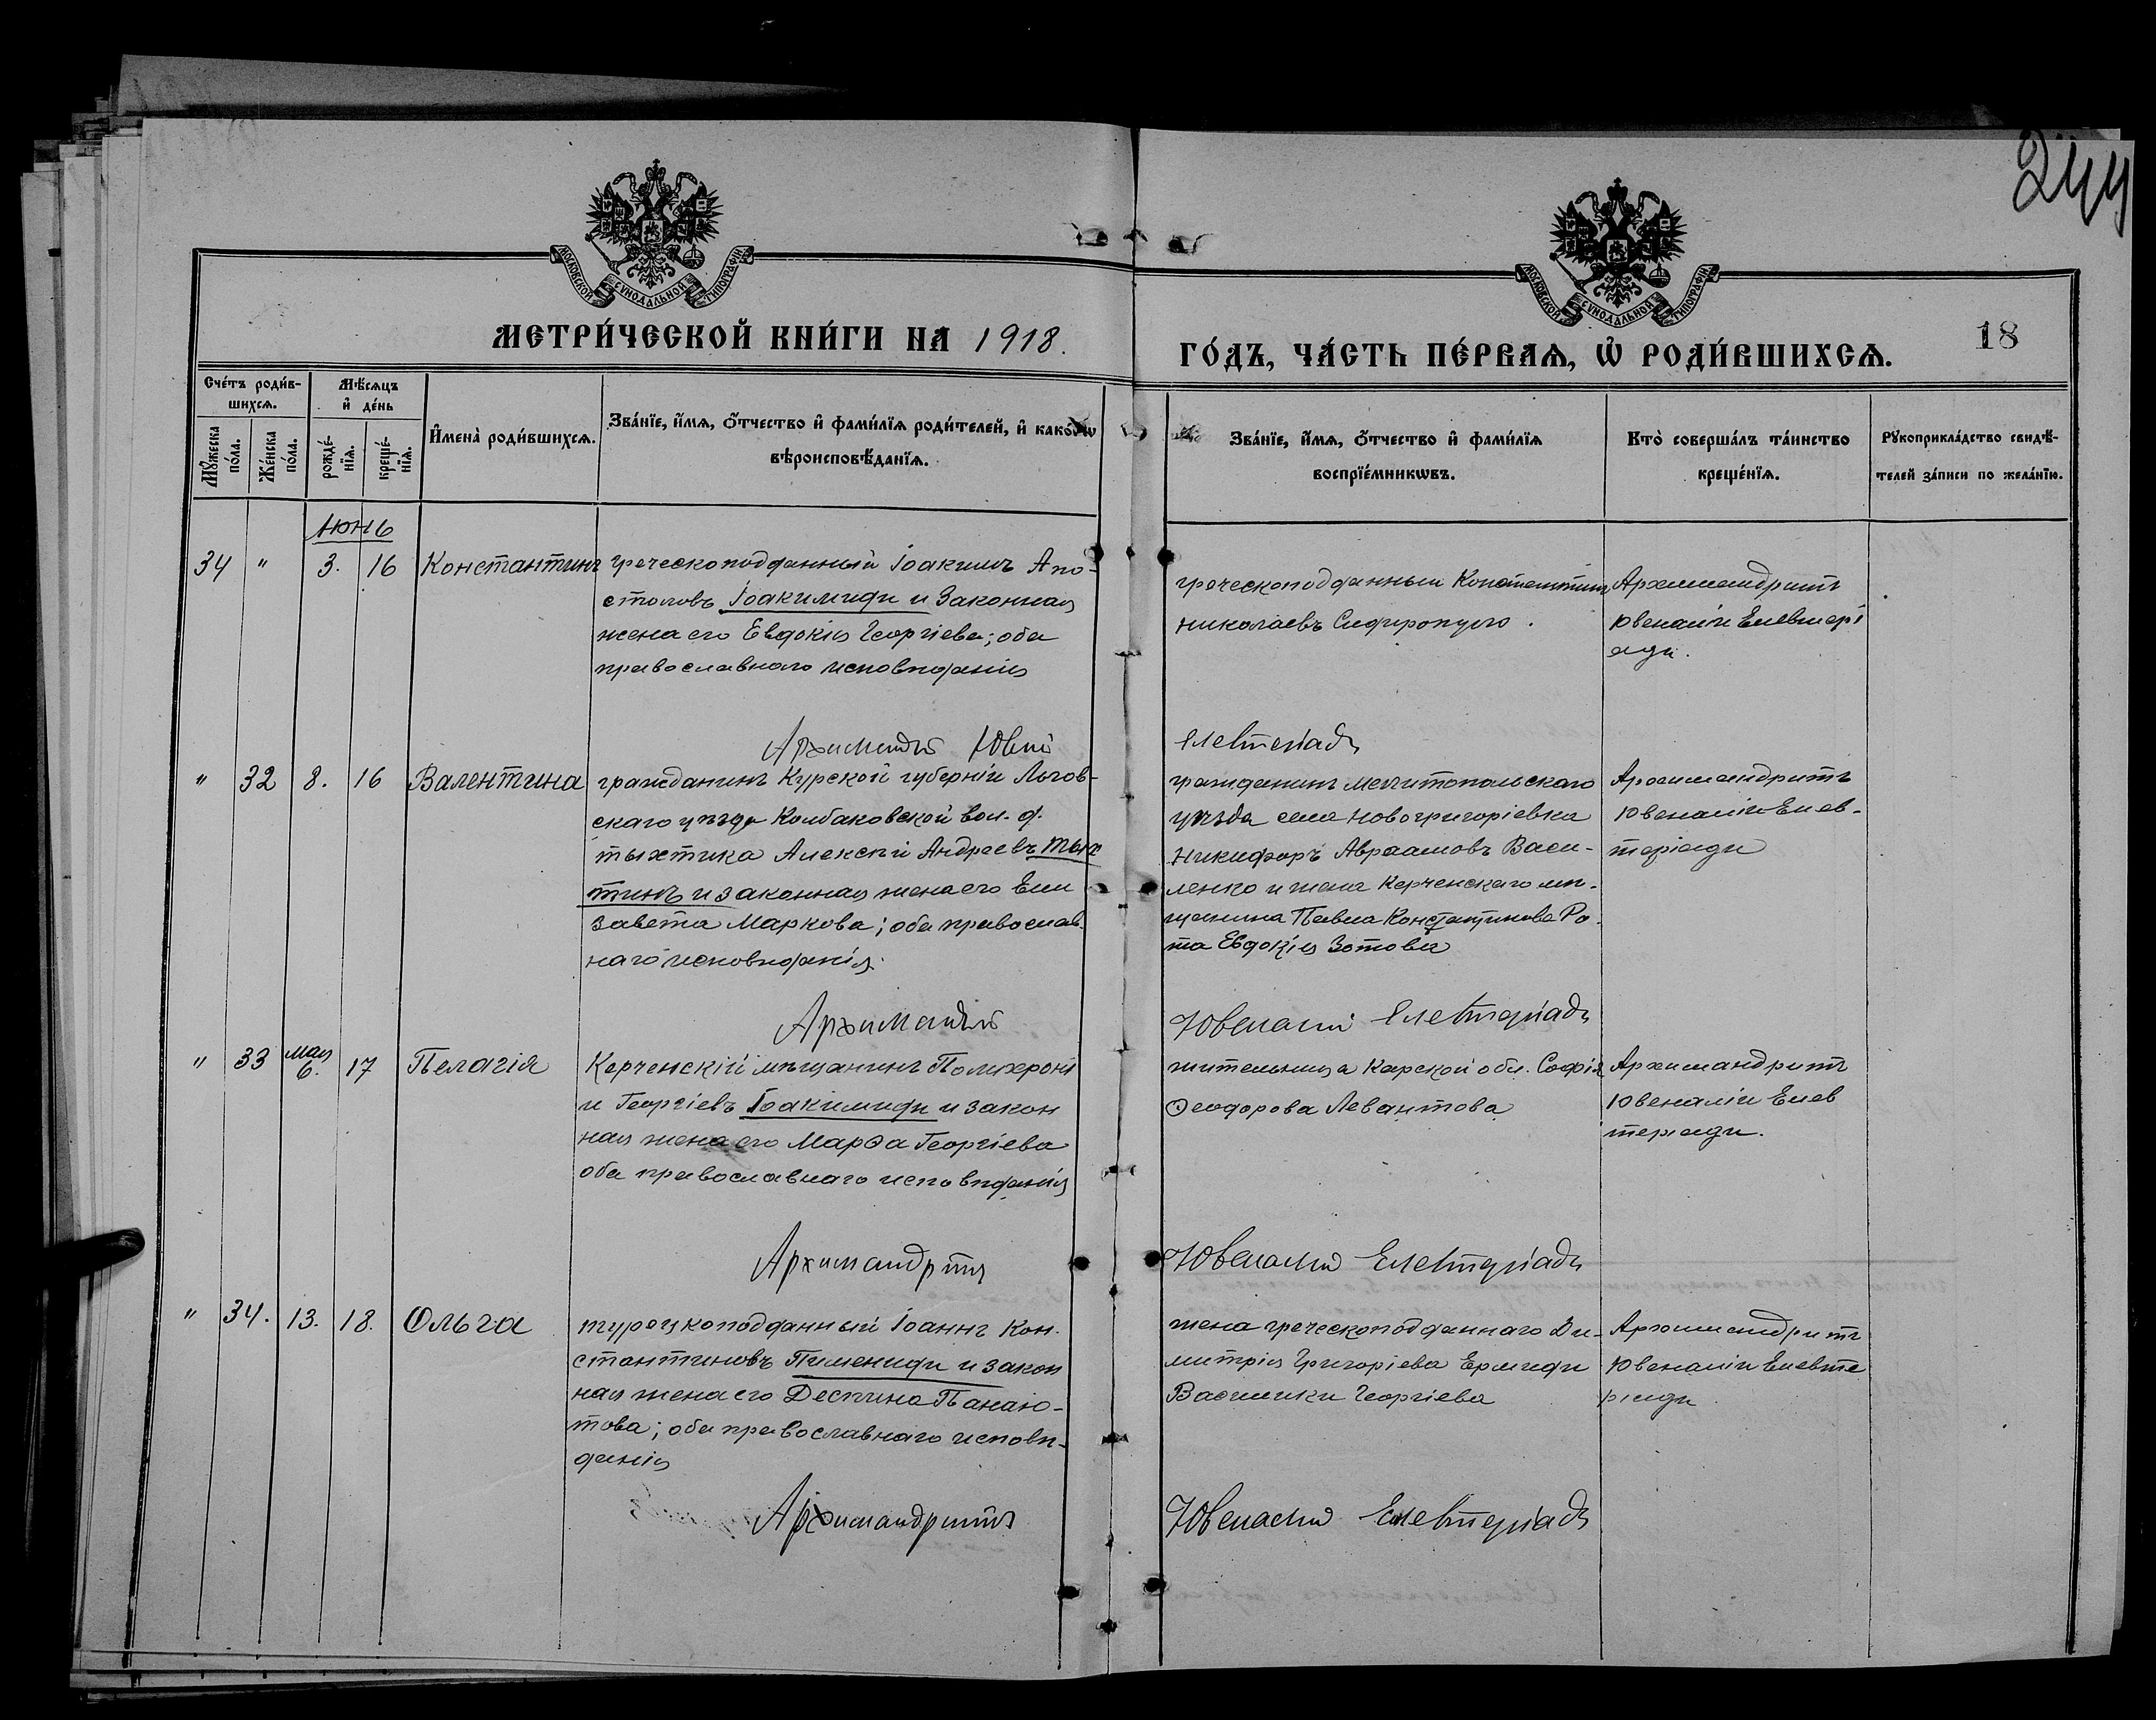 244
МОСКОВСКОЙ СѴНОДАЛЬНОЙ ТИПОГРАФІИ
МОСКОВСКОЙ СѴНОДАЛЬНОЙ ТИПОГРАФІИ
МЕТРИ́ЧЕСКОЙ КНИ́ГИ НА 1918.
ГО́ДЪ, ЧА́СТЬ ПЕ́РВАѦ, Ѡ҆ РОДИ́ВШИХСѦ.
18
Сче́тъ роди́в-
шихсѧ.
Мꙋ́жеска по́ла.
Же́нска по́ла.
Мѣ́сѧцъ
и҆ де́нь
рожде́-
нїѧ.
креще́-
нїѧ.
И҆мена̀ роди́вшихсѧ.
Зва́нїе, и҆́мѧ, ѻ҆́тчество и҆ фами́лїѧ роди́телей, и҆ како́гѡ
вѣроисповѣ́данїѧ.
Зва́нїе, и҆́мѧ, ѻ҆́тчество и҆ фами́лїѧ
воспрїе́мникѡвъ.
Кто̀ соверша́лъ та́инство
креще́нїѧ.
Рꙋкоприкла́дство свидѣ́-
телей за́писи по жела́нїю.
Июнь
34 " 3. 16 Константинъ
греческоподданный Іоакимъ Апо-
столовъ Іоакимиди и законная
жена его Евдокія Георгіева; оба
православнаго исповѣданія
греческоподданный Константинъ
Николаевъ
Архимандритъ
Ювеналій Елевтері
ади.
Архимандр Ювен
Елевтеріади
" 32 8. 16 Валентина
гражданинъ Курской губерніи Льгов-
скаго уѣзда Колбаковской вол. д.
тыхтика Алексѣй Андреевъ Тых
тинъ и законная жена его Ели
завета Маркова; оба православ.
наго исповѣданія.
гражданинъ Мелитопольскаго
уѣзда села Новогригоріевка
Никифоръ Авраамовъ Васи-
ленко и жена Керченскаго мѣ-
щанина Павла Константинова Ро-
та Евдокія Зотова
Архимандритъ
Ювеналій Елев-
теріади
Архимандр
Ювеналій Елевтеріади
" 33 мая 6. 17 Пелагія
Керченскій мѣщанинъ Полихроні
й Георгіевъ Іоакимиди и закон
ная жена его Марѳа Георгіева
оба православнаго исповѣданія
жительница Карской обл. Софія
Ѳеодорова Левантова
Архимандритъ
Ювеналій Елев
теріади.
Архимандритъ
Ювеналій Елевтеріади
" 34. 13. 18. Ольга
турецкоподданный Іоаннъ Кон-
стантиновъ Пимениди и закон
ная жена его Деспина Панаіо-
това; оба православнаго исповѣ-
данія
жена греческоподданнаго Ди-
митрія Григоріева Ермиди
Василики Георгіева
Архимандритъ
Ювеналій Елевте
ріади
Архимандритъ
Ювеналій Елевтеріади